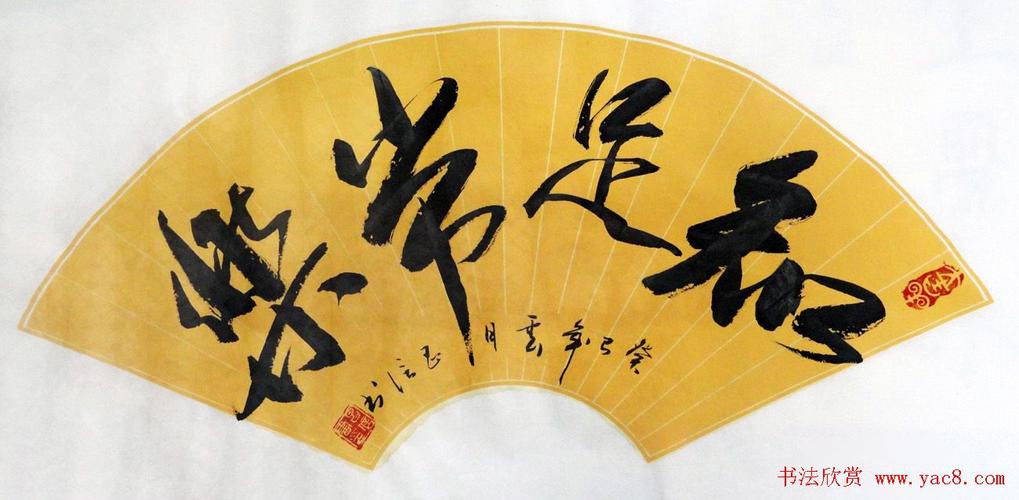 知足常樂
癸巳年雲月
书法欣赏 www.yac8.com